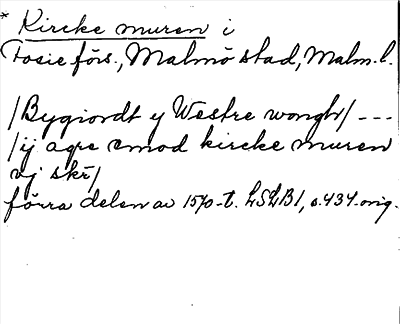 * Kircke muren i
Fosie förs., Malmö stad, Malm. l.
/Bygiordt y Westre wongh/ ---
/ij agre emod kircke muren
vj skr/
förra delen av 1570-t. LSLB1, s. 434. orig.